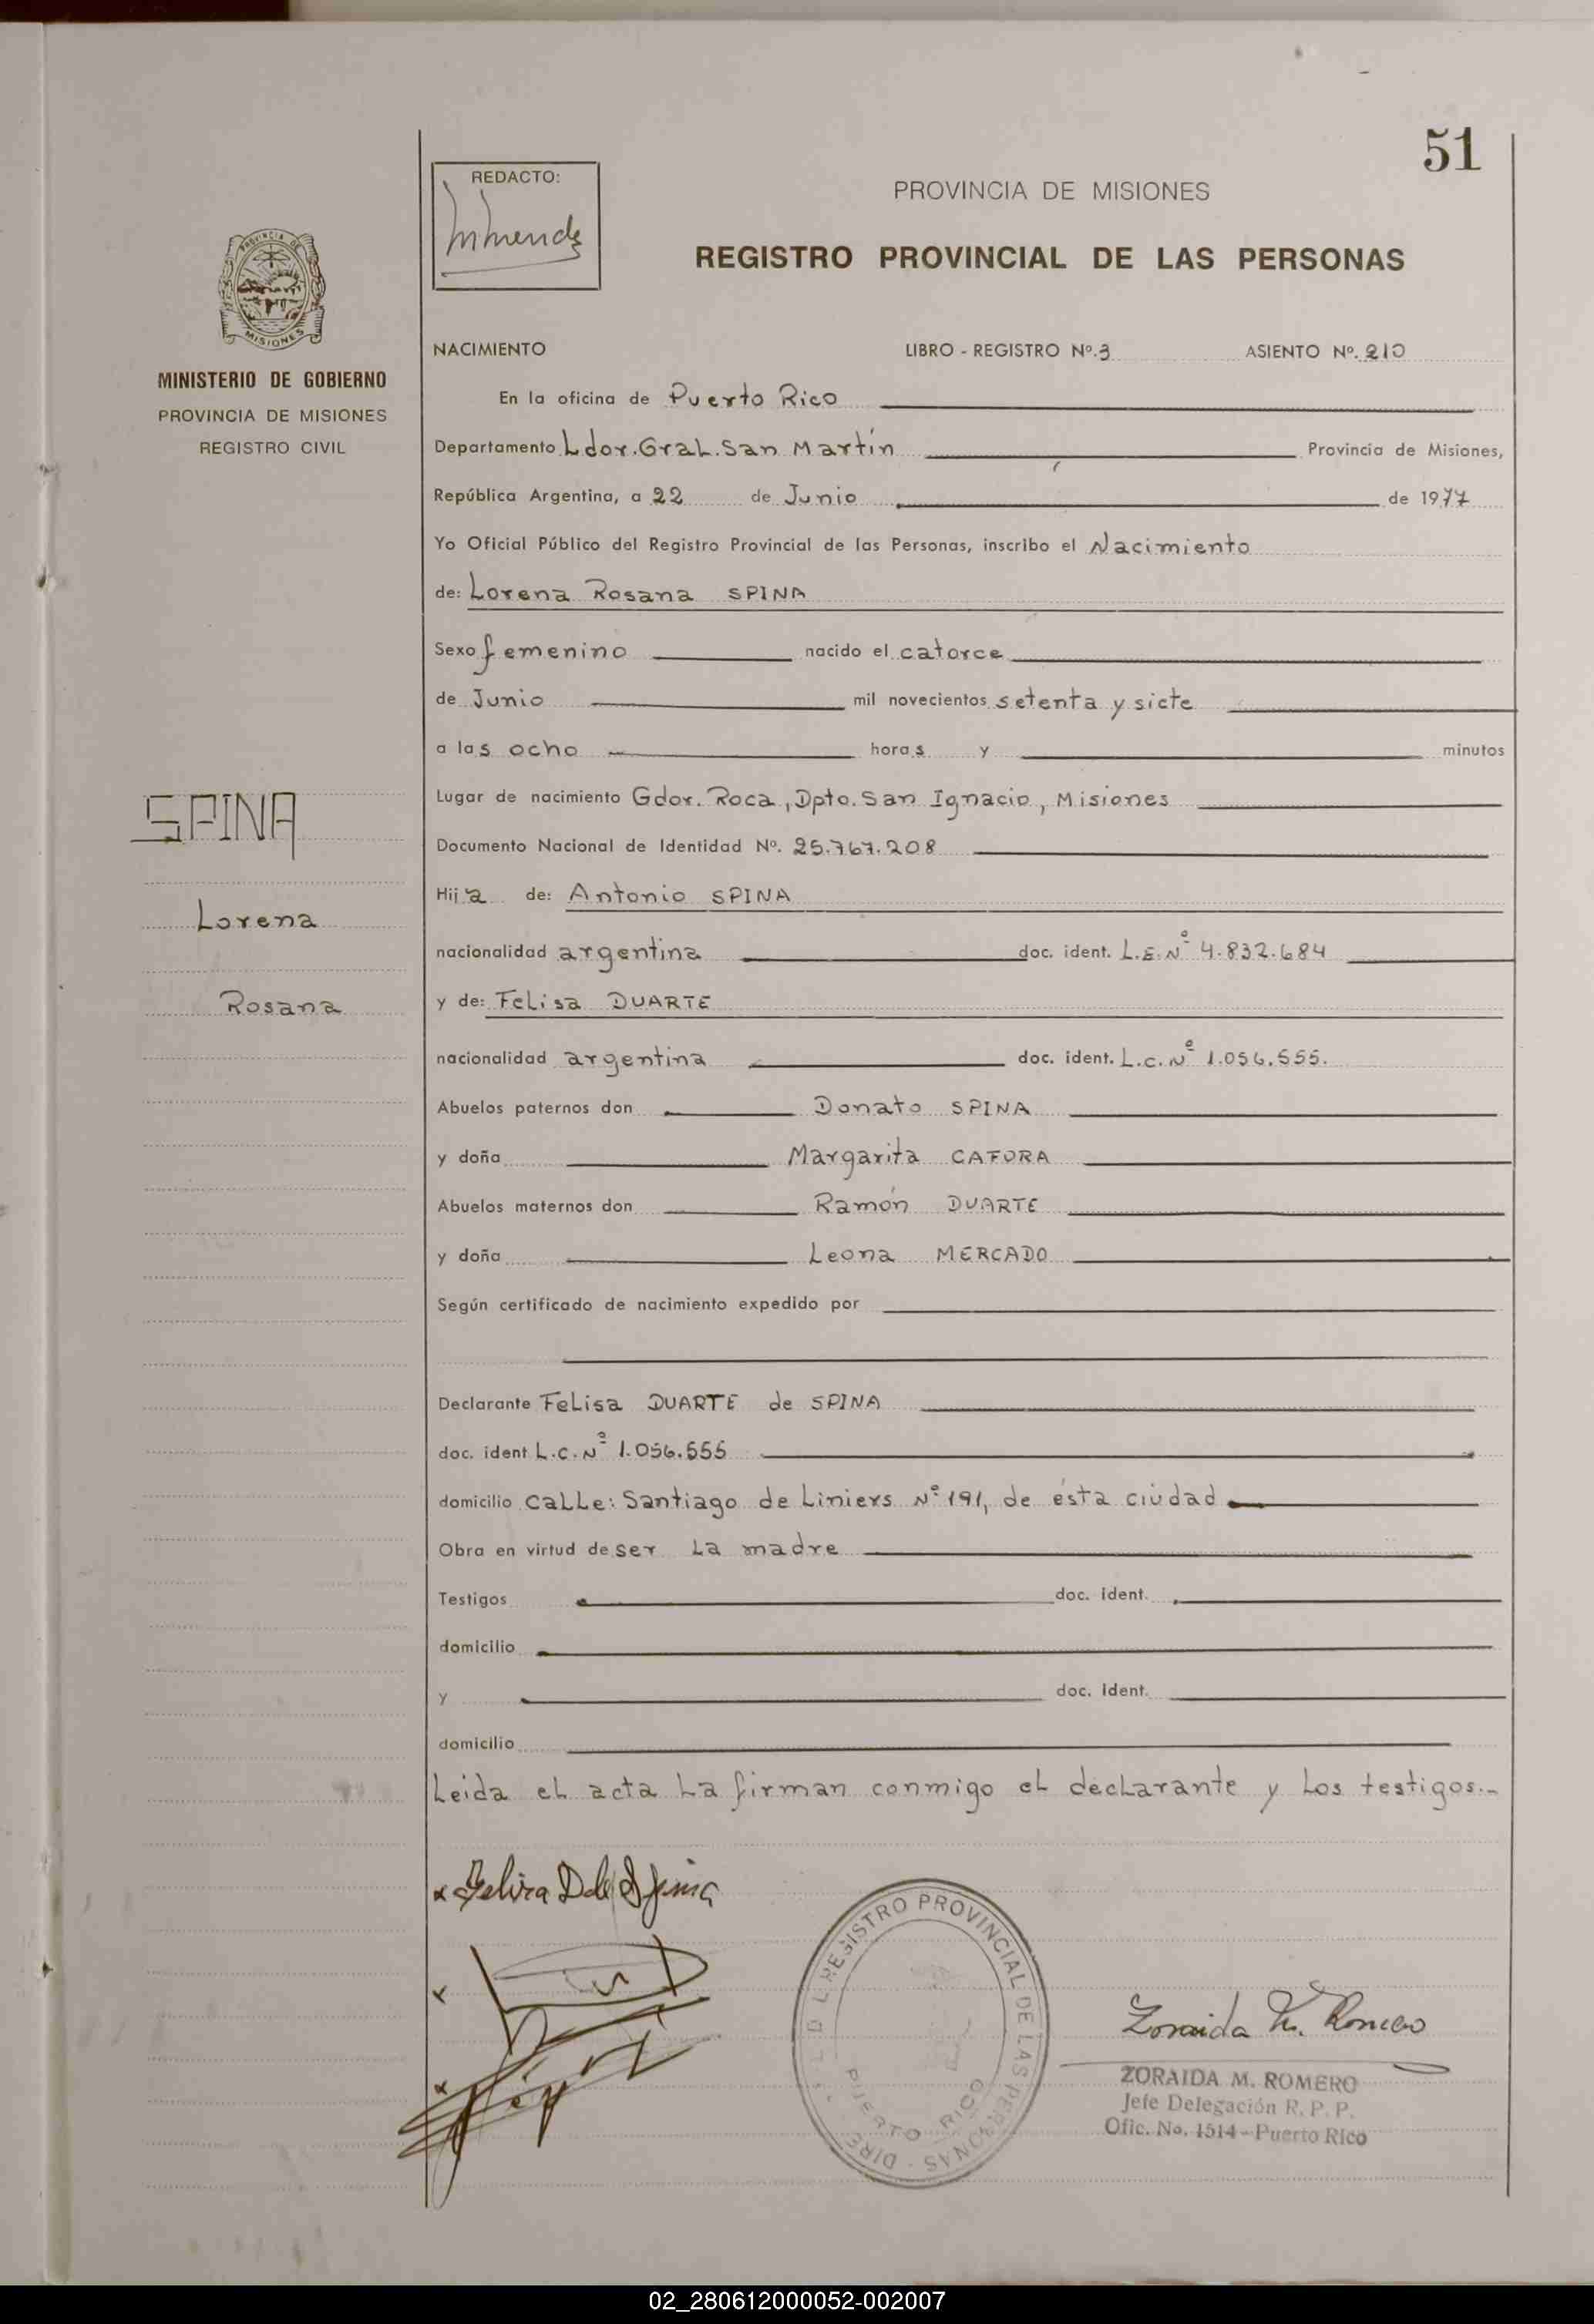 51
REDACTO:
PROVINCIA DE MISIONES
REGISTRO PROVINCIAL DE LAS PERSONAS
PROVINCIA DE
MISIONES
MINISTERIO DE GOBIERNO
PROVINCIA DE MISIONES
REGISTRO CIVIL
NACIMIENTO LIBRO - REGISTRO Nº. 3 ASIENTO Nº. 210
En la oficina de Puerto Rico
Departamento Ldor. Gral. San Martín Provincia de Misiones,
República Argentina, a 22 de Junio de 1977
Yo Oficial Público del Registro Provincial de las Personas, inscribo el Nacimiento
de: Lorena Rosana SPINA
Sexo femenino nacido el catorce
de Junio mil novecientos setenta y siete
a las ocho horas y minutos
Lugar de nacimiento Gdor. Roca, Dpto. San Ignacio, Misiones
SPINA
Lorena
Rosana
Documento Nacional de Identidad Nº. 25.767.208
Hija de: Antonio SPINA
nacionalidad argentina doc. ident. L.E. Nº 4.832.684
y de: Felisa DUARTE
nacionalidad argentina doc. ident. L.C. Nº 1.056.555.
Abuelos paternos don Donato SPINA
y doña Margarita CAFORA
Abuelos maternos don Ramón DUARTE
y doña Leona MERCADO
Según certificado de nacimiento expedido por
Declarante Felisa DUARTE de SPINA
doc. ident L.C. Nº 1.056.555
domicilio Calle: Santiago de Liniers Nº 191, de ésta ciudad
Obra en virtud de ser la madre
Testigos doc. ident.
domicilio
y doc. ident.
domicilio
Leida el acta la firman conmigo el declarante y los testigos.-
REGISTRO PROVINCIAL DE LAS PERSONAS
PUERTO RICO
Zoraida M. Romero
ZORAIDA M. ROMERO
Jefe Delegación R. P. P.
Ofic. No. 1514 - Puerto Rico
02_280612000052-002007